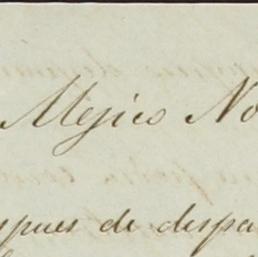 Mejico No
spues de despa